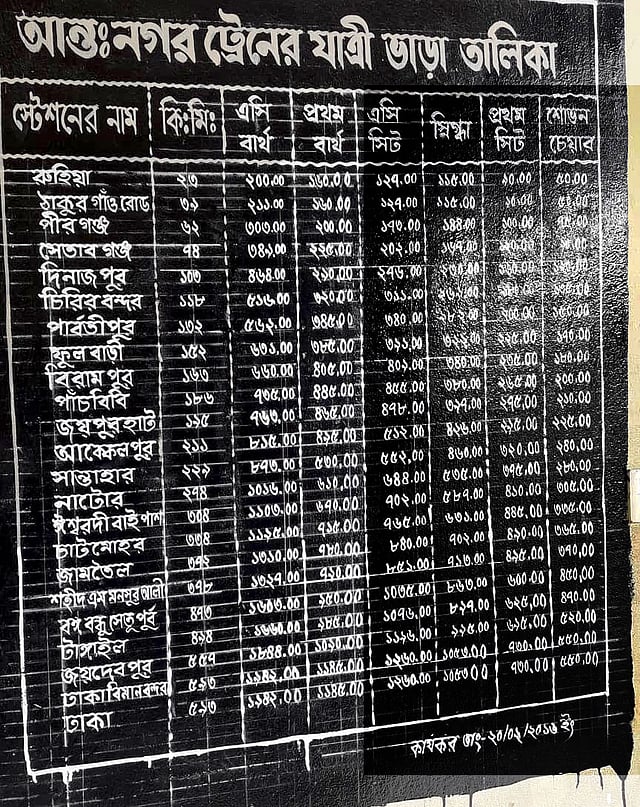 আন্তঃনগর ট্রেনের যাত্রী ভাড়া তালিকা
স্টেশনের নাম কি:মি: এসি বার্থ প্রথম বার্থ এসি সিট স্নিগ্ধা প্রথম সিট শোভন চেয়ার
রুহিয়া ২৩ ২০০.০০ ১৬০.০০ ১২৭.০০ ১১৫.০০ ৯০.০০ ৫০.০০
ঠাকুর গাঁও রোড ৩৯ ২১১.০০ ১৬০.০০ ১২৭.০০ ১১৫.০০ ৯০.০০
পীর গঞ্জ ৬২ ৩০৩.০০ ২০০.০০ ১৭৩.০০ ১৪৪.০০ ১০০.০০
সেতাব গঞ্জ ৭৪ ৩৪৯.০০ ২০২.০০ ১৬৭.০০
দিনাজ পুর ১০৩ ৪৬৪.০০ ২৯০.০০ ২৭৬.০০ ২৩০.০০ ১৬০.০০
চিরির বন্দর ১১৮ ৫১৬.০০ ৩২০.০০ ৩১১.০০ ২৬১.০০ ১৮০.০০ ১৩৫.০০
পার্বতীপুর ১৩২ ৫৬২.০০ ৩৪৫.০০ ৩৪০.০০ ২০০.০০ ১৫০.০০
ফুল বাড়ী ১৫২ ৬৩১.০০ ৩৮৫.০০ ৩৯১.০০ ৩২২.০০ ২২৫.০০ ১৭০.০০
বিরাম পুর ১৬৩ ৬৬০.০০ ৪০৫.০০ ৪০৯.০০ ৩৪০.০০ ২৩৫.০০ ১৮০.০০
পাঁচবিবি ১৮৬ ৭৩৫.০০ ৪৪৫.০০ ৪৫৫.০০ ৩৮০.০০ ২৬৫.০০ ২০০.০০
জয়পুর হাট ১৯৫ ৭৬৩.০০ ৪৬৫.০০ ৪৭৮.০০ ৩৯৭.০০ ২৭৫.০০ ২১০.০০
আক্কেল পুর ২১১ ৮১৫.০০ ৪৯৫.০০ ৫১২.০০ ৪২৬.০০ ২৯৫.০০ ২২৫.০০
সান্তাহার ২২৯ ৮৭৩.০০ ৫৩০.০০ ৫৫২.০০ ৪৬০.০০ ৩২০.০০ ২৪০.০০
নাটোর ২৭৪ ১০১৬.০০ ৬১০.০০ ৬৪৪.০০ ৫৩৫.০০ ৩৭৫.০০ ২৮০.০০
ঈশ্বরদী বাই পাশ ৩০৪ ১১০৩.০০ ৬৭০.০০ ৭০২.০০ ৫৮৭.০০ ৪১০.০০ ৩০৫.০০
চাটমোহর ৩৩৪ ১১৯৫.০০ ৭১৫.০০ ৭৬৫.০০ ৬৩১.০০ ৪৪৫.০০ ৩৩৫.০০
জামতৈল ৩৭২ ১৩১০.০০ ৭৮০.০০ ৮৪০.০০ ৭০২.০০ ৪৯০.০০ ৩৬৫.০০
শহীদ এম মনসুর আলী ৩৭৮ ১৩২৭.০০ ৭৯০.০০ ৮৫১.০০ ৭১৩.০০ ৪৯৫.০০ ৩৭০.০০
বঙ্গ বন্ধু সেতু পূর্ব ৪৭৩ ১৬০৩.০০ ৯৫০.০০ ১০৩৫.০০ ৮৬৩.০০ ৬০০.০০ ৪৫০.০০
টাঙ্গাইল ৪৯৪ ১৬৬০.০০ ৯৮৫.০০ ১০৭৬.০০ ৮৯৭.০০ ৬২৫.০০ ৪৭০.০০
জয়দেব পুর ৫৫৭ ১৮৪৪.০০ ১০৯০.০০ ১১৯৬.০০ ৯৯৫.০০ ৬৯৫.০০ ৫২০.০০
ঢাকা বিমান বন্দর ৫৯৩ ১৯৪২.০০ ১১৪৫.০০ ১২৬০.০০ ১০৫৩.০০ ৭৩০.০০ ৫৫০.০০
ঢাকা ৫৯৩ ১৯৪২.০০ ১১৪৫.০০ ১২৬০.০০ ১০৫৩.০০ ৭৩০.০০ ৫৫০.০০
কার্যকর তাং-২০/০২/২০১৬ ইং